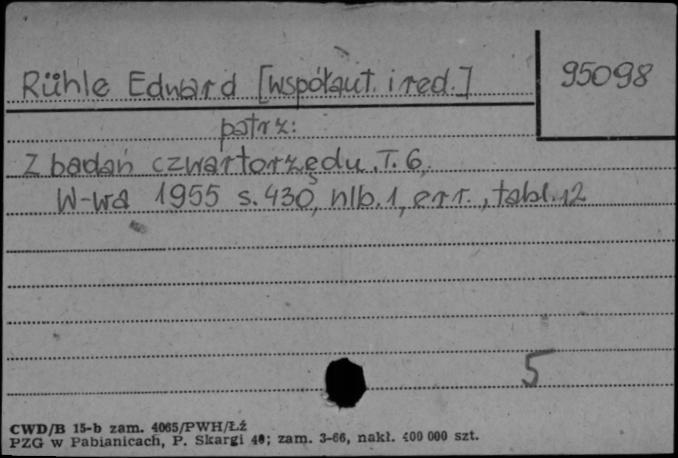 Rühle Edward [współaut. i red.]
95098
patrz:
Z badań czwartorzędu. T. 6,
W-wa 1955 s. 430, nlb. 1, err., tabl. 12
5
CWD/B 15-b zam. 4065/PWH/Łź
PZG w Pabianicach, P. Skargi 40; zam. 3-66, nakł. 400 000 szt.